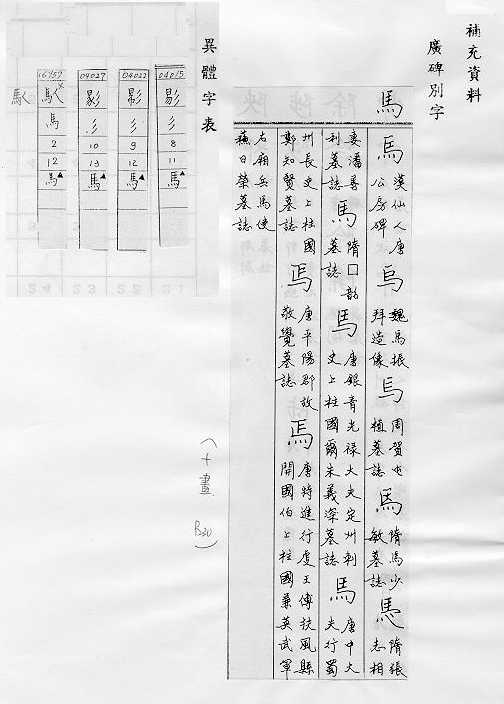 補充資料
廣碑別字
馬
馬 漢仙人唐公房碑 馬 魏馬振拜造像 馬 周賀屯植墓誌 馬 隋馬少敏墓誌 馬 隋張志相
妻潘善利墓誌 馬 隋□韶墓誌 馬 唐銀青光祿大夫定州刺史上柱國爾朱義深墓誌 馬 唐中大夫行蜀
州長史上柱國鄭知賢墓誌 馬 唐平陽郡故敬覺墓誌 馬 唐特進行虔王傅扶風縣開國伯上柱國兼英武軍
右廂兵馬使蘇日榮墓誌
（十畫 B20）
異體字表
04015 彡 8 11 馬▲
04022 彡 9 12 馬▲
04027 彡 10 13 馬▲
16957 馬 2 12 馬▲